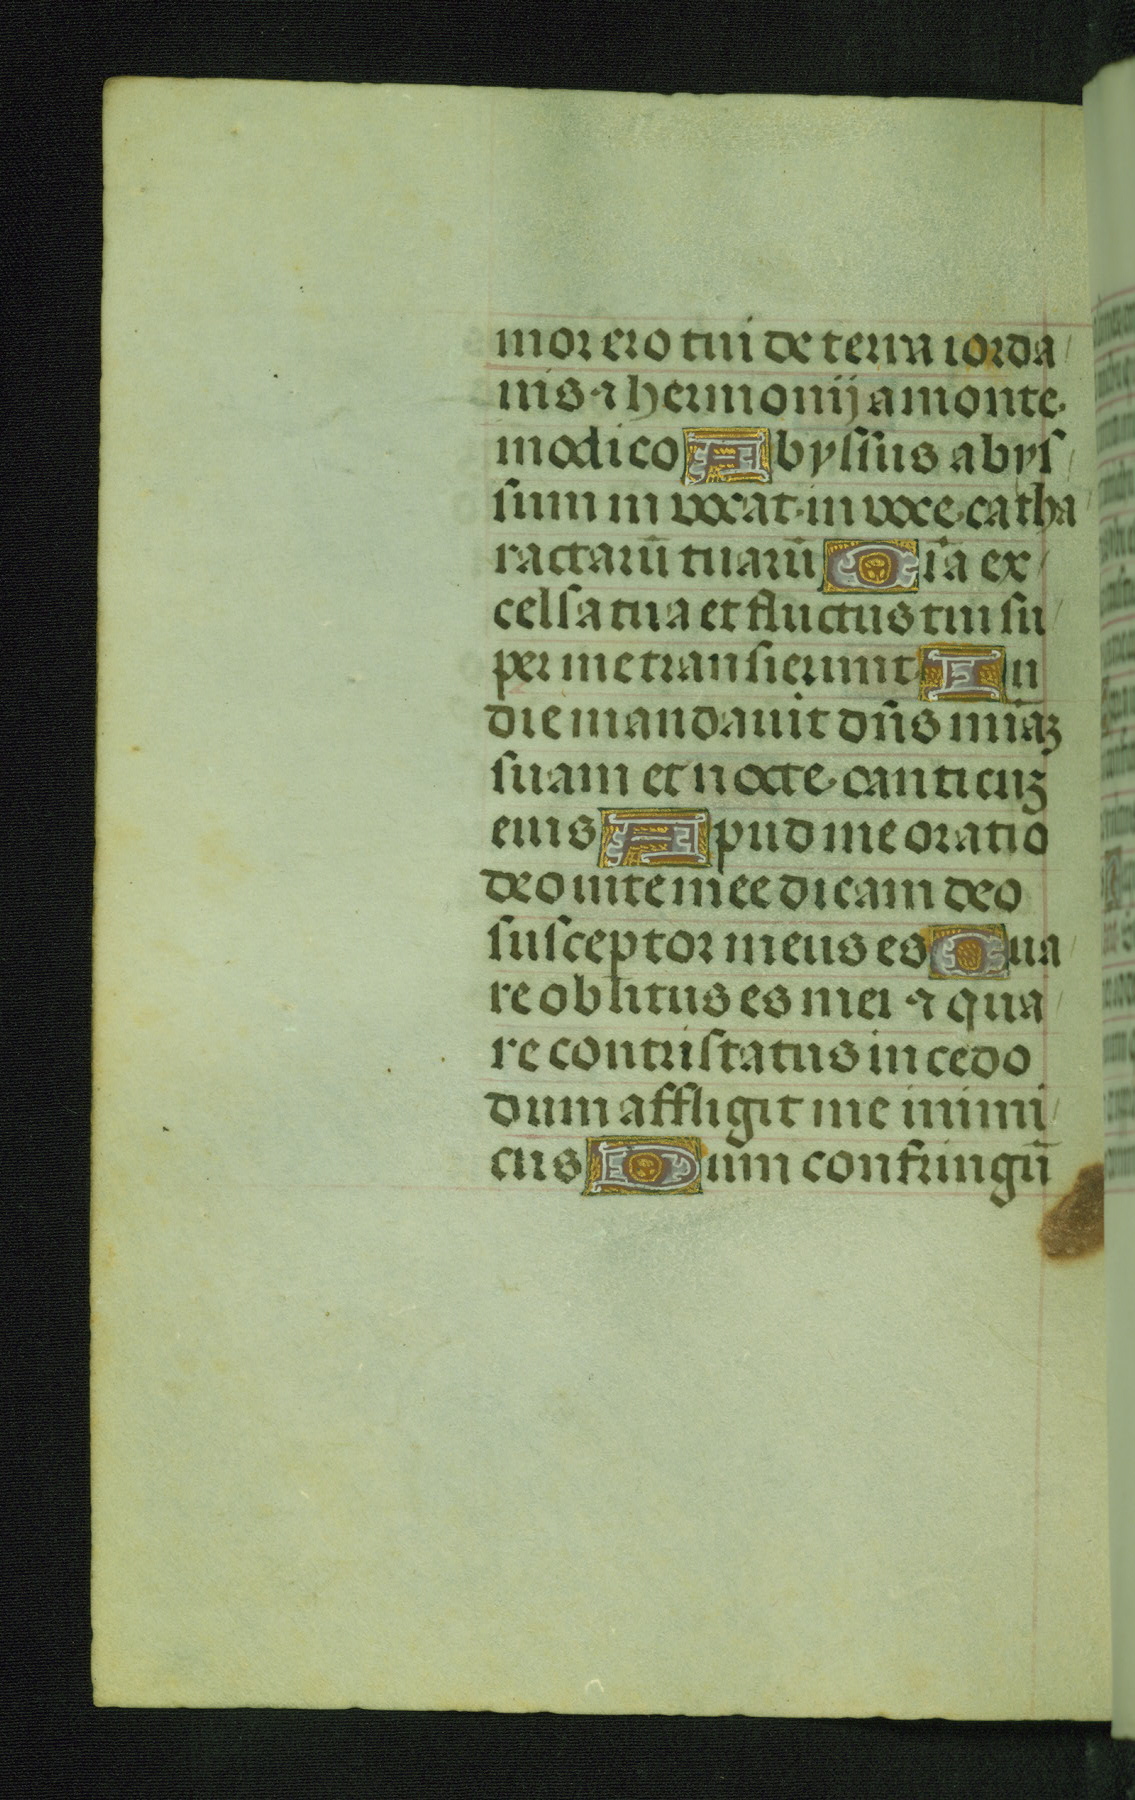 mor ero tui de terra iorda
nis ⁊ hermonij a monte
modico Abyssus abys
sum in vocat in voce catha
ractarū tuarū Oīa ex
celsa tua et fluctus tui su
per me transierunt In
die mandauit dn̄s mīaꝫ
suam et nocte canticuꝫ
eius Apud me oratio
deo uite mee dicam deo
susceptor meus es Qua
re oblitus es mei ⁊ qua
re contristatus incedo
dum affligit me inimi
cus Dum confringū